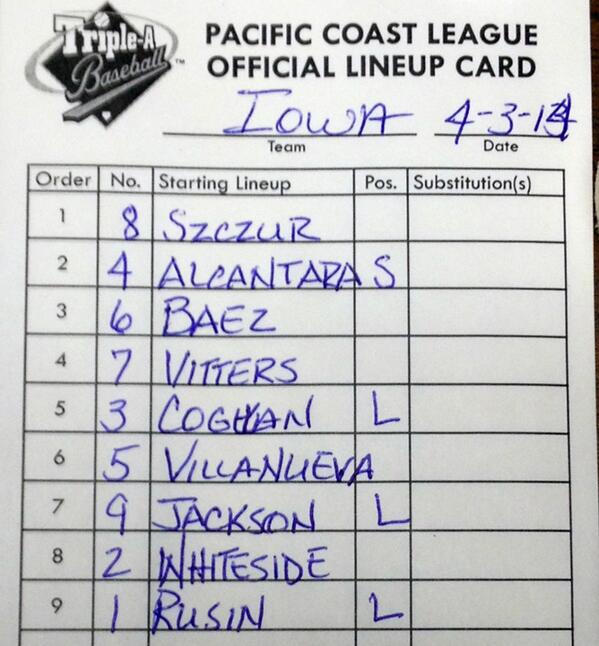 Triple-A
Baseball™
PACIFIC COAST LEAGUE
OFFICIAL LINEUP CARD
IOWA 4-3-14
Team Date
Order No. Starting Lineup Pos. Substitution(s)
1 8 SZCZUR
2 4 ALCANTARA S
3 6 BAEZ
4 7 VITTERS
5 3 COGHLAN L
6 5 VILLANUEVA
7 9 JACKSON L
8 2 WHITESIDE
9 1 RUSIN L